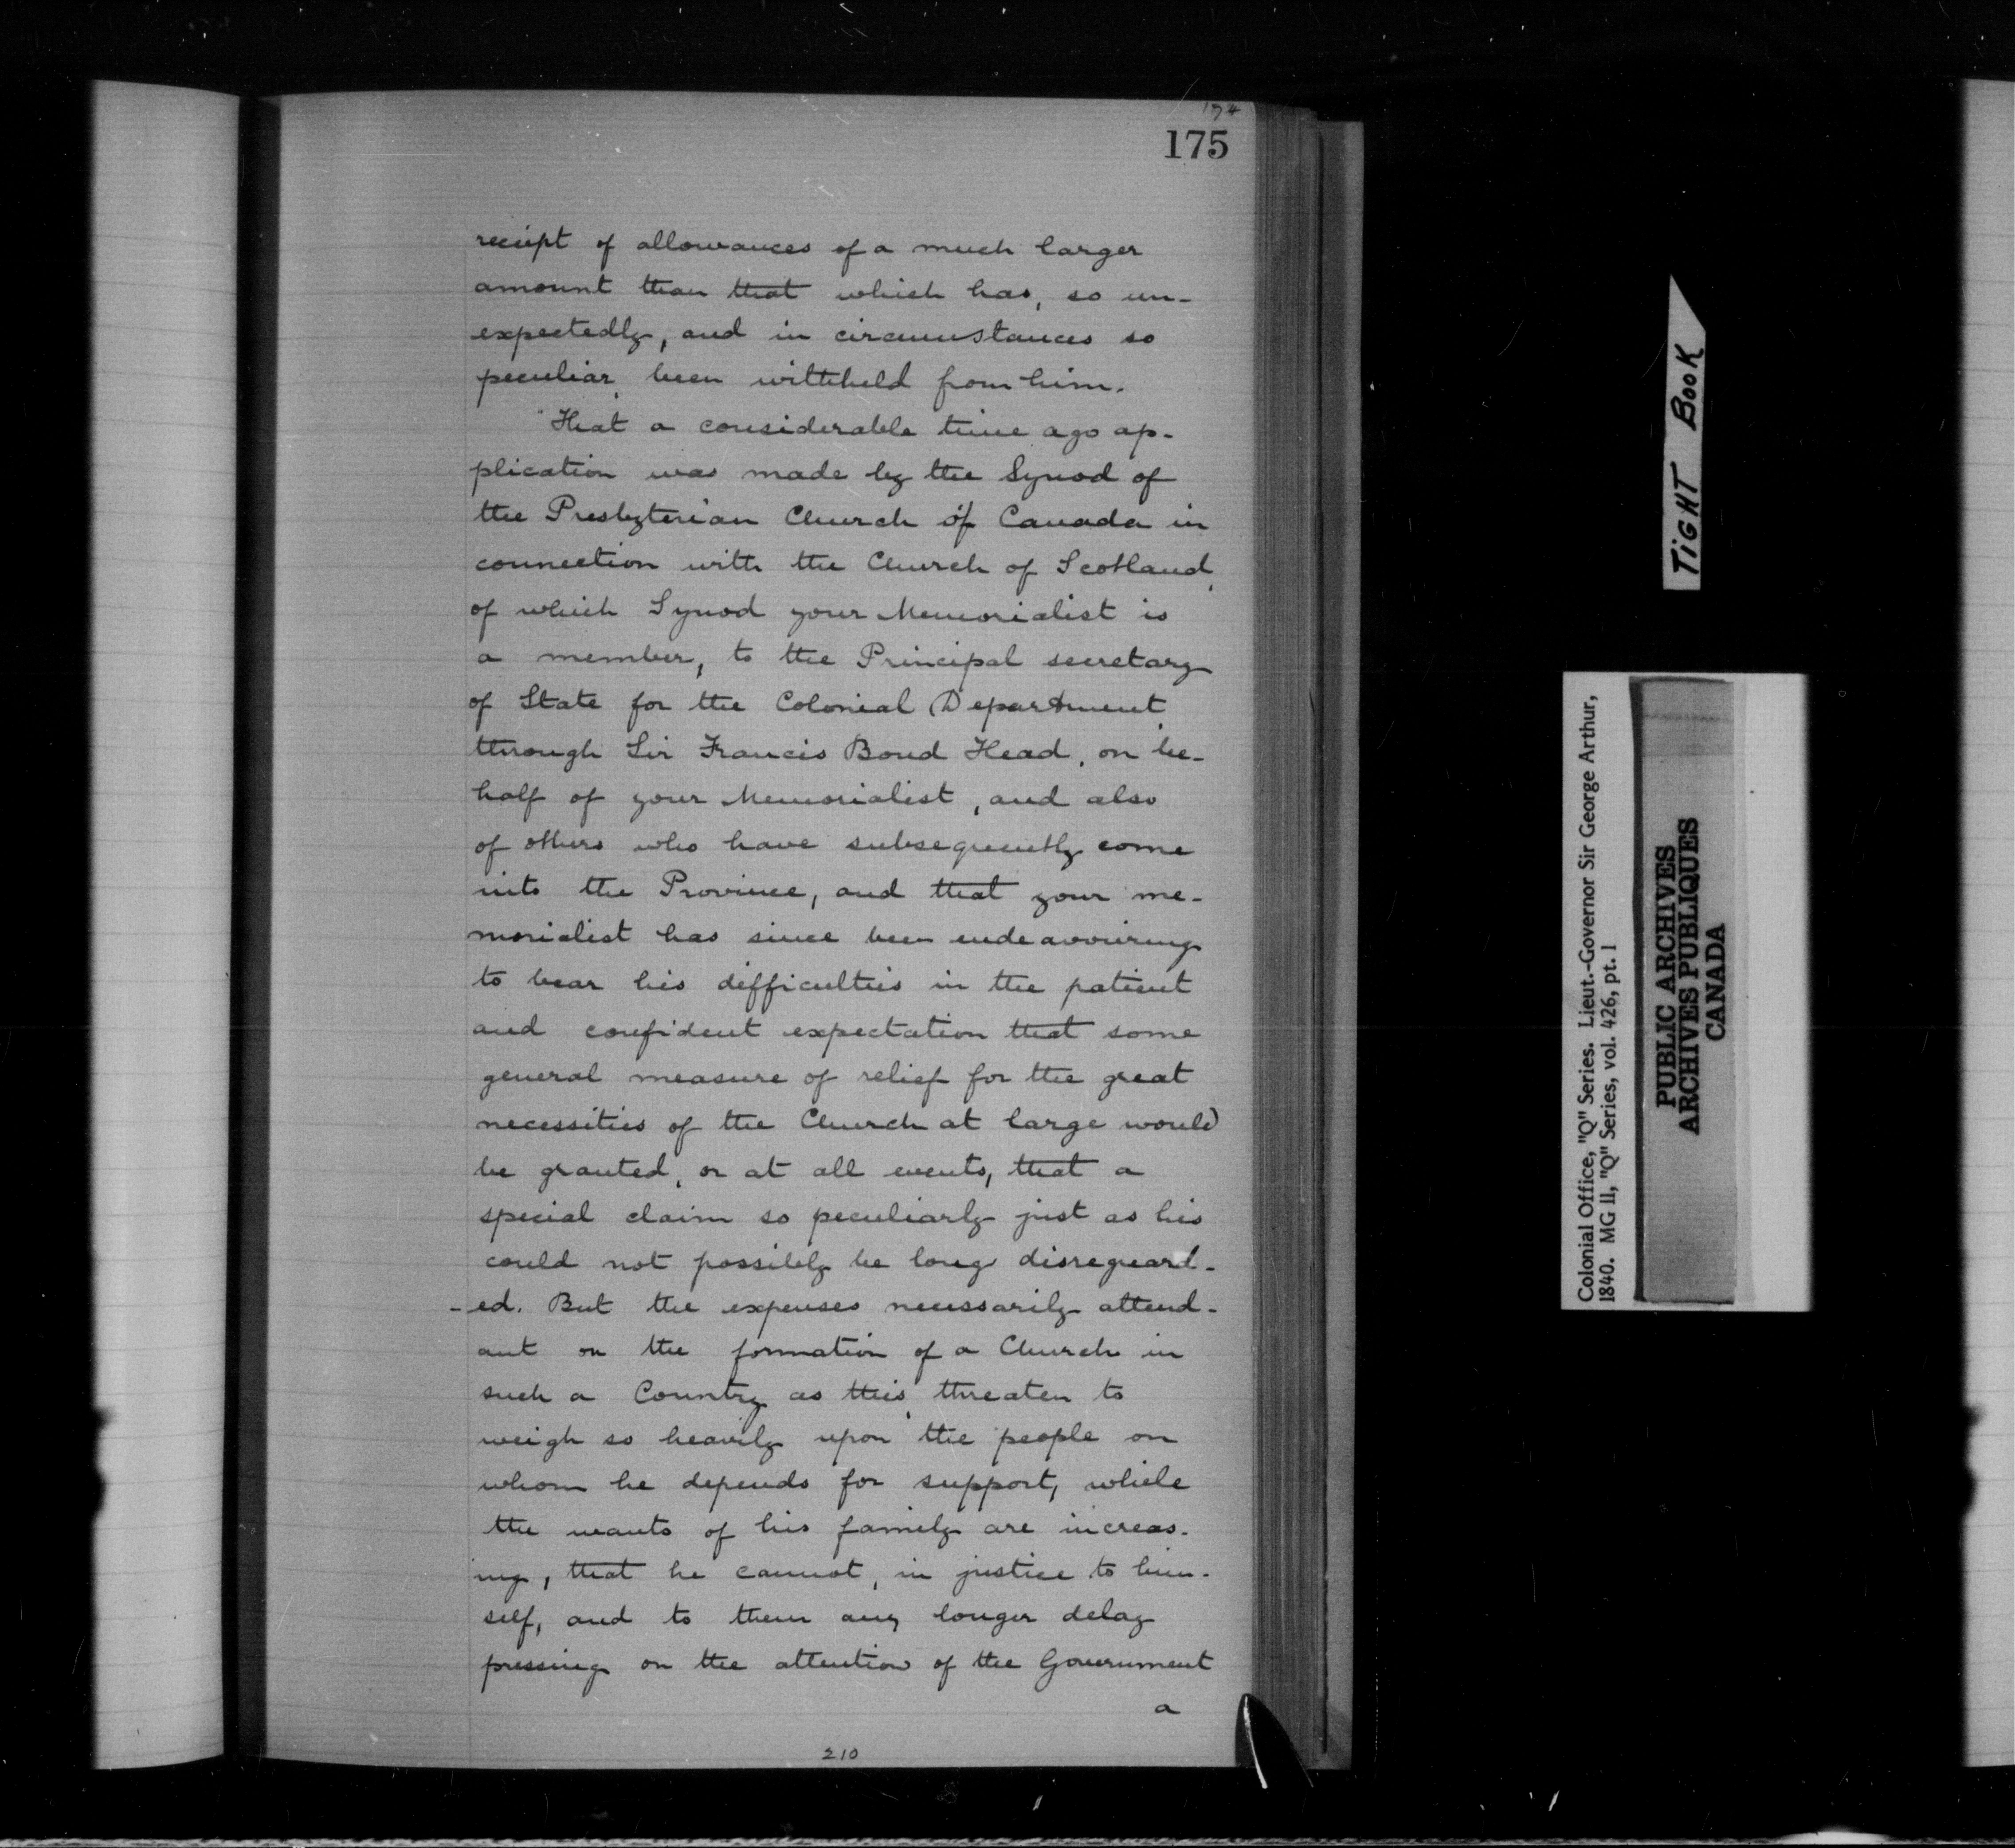 174
175
receipt of allowances of a much larger
amount than that which has, so un-
expectedly, and in circumstances so
peculiar, been withheld from him.
"That a considerable time ago ap-
plication was made by the Synod of
the Presbyterian Church of Canada in
connection with the Church of Scotland,
of which Synod your Memorialist is
a member, to the Principal secretary
of State for the Colonial Department,
through Sir Francis Bond Head, on be-
half of your Memorialist, and also
of others who have subsequently come
into the Province, and that your me-
morialist has since been endeavouring
to bear his difficulties in the patient
and confident expectation that some
general measure of relief for the great
necessities of the Church at large would
be granted, or at all events, that a
special claim so peculiarly just as his
could not possibly be long disreguard-
-ed. But the expenses necessarily attend-
ant on the formation of a Church in
such a Country as this, threaten to
weigh so heavily upon the people on
whom he depends for support, while
the wants of his family are increas-
ing, that he cannot, in justice to him-
self, and to them any longer delay
pressing on the attention of the Government
a
210
TIGHT BOOK
Colonial Office, "Q" Series. Lieut.-Governor Sir George Arthur,
1840. MG 11, "Q" Series, vol. 426, pt. 1
PUBLIC ARCHIVES
ARCHIVES PUBLIQUES
CANADA